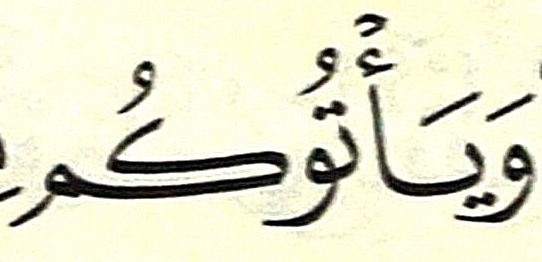 وَيَأۡتُوكُم